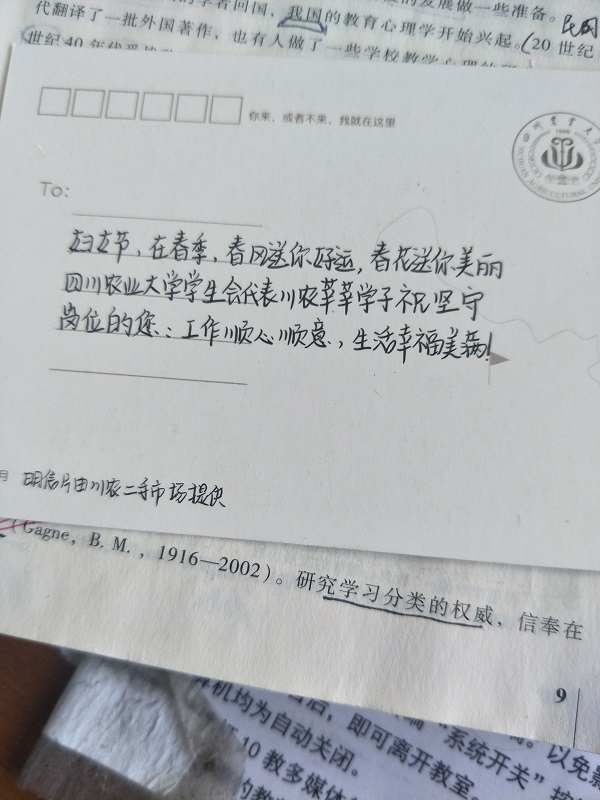 代翻译了一批外国著作,也有人做了一些学校教学心理的
的学者回国,我国的教育心理学开始兴起。(20世纪
民国
世纪40年代
你来、或者不来,我就在这里
四川农业大学
1906
SICHUAN AGRICULTURAL
To:
妇女节,在春季,春风送你好运,春花送你美丽
四川农业大学学生会代表川农莘莘学子祝坚守
岗位的您:工作顺心顺意,生活幸福美满!
月
明信片由川农二手市场提供
(Gagne, B. M. , 1916—2002)。研究学习分类的权威,信奉在
9
后,即可离开教室
“系统开关”
以免影
机均为自动关闭。
10教多媒体